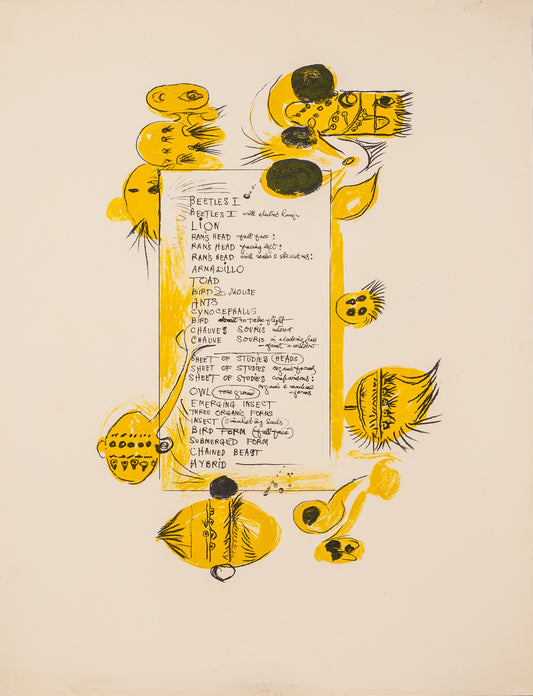 BEETLES I
BEETLES II with electric lamp
LION
RAM'S HEAD full face:
RAM'S HEAD facing left:
RAM'S HEAD with rocks & skeletons:
ARMADILLO
TOAD
BIRD & MOUSE
ANTS
CYNOCEPHALUS
BIRD about to take flight
CHAUVES SOURIS
CHAUVE SOURIS in
against a window
SHEET OF STUDIES (HEADS)
SHEET OF STUDIES organic forms
SHEET OF STUDIES comparisons:
organic & machine forms
OWL (rose ground)
EMERGING INSECT
THREE ORGANIC FORMS
INSECT (simulating seeds)
BIRD FORM (full face)
SUBMERGED FORM
CHAINED BEAST
HYBRID